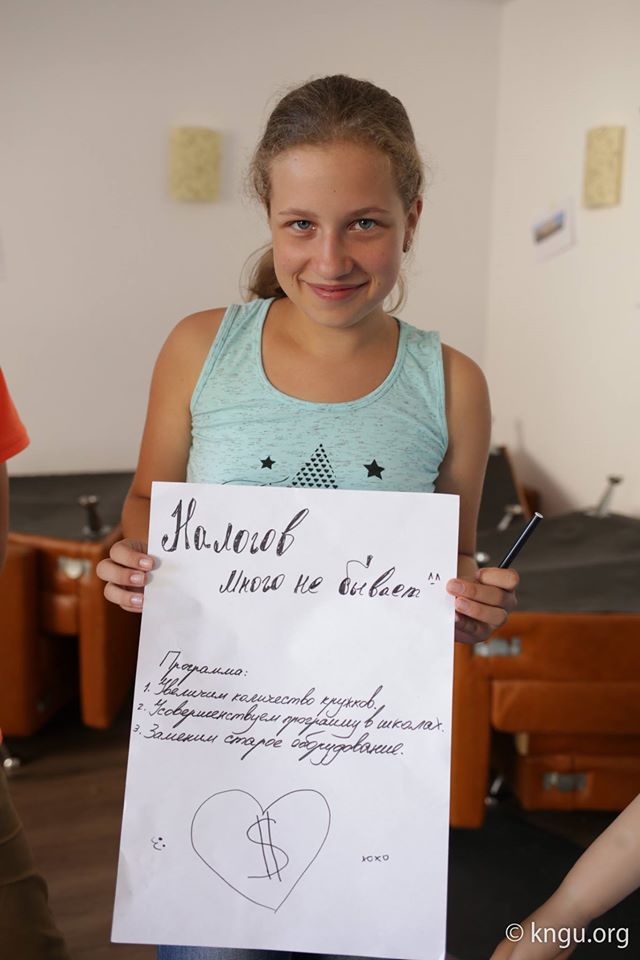 Налогов
много не бывает ^^
Программа:
1. Увеличим количество кружков.
2. Усовершенствуем программу в школах.
3. Заменим старое оборудование.
$
xoxo
© kngu.org